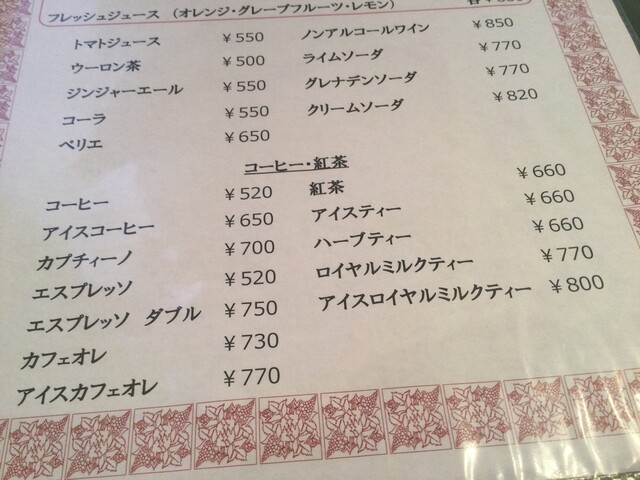 フレッシュジュース （オレンジ・グレープフルーツ・レモン）
トマトジュース ￥550
ウーロン茶 ￥500
ジンジャーエール ￥550
コーラ ￥550
ペリエ ￥650
ノンアルコールワイン ￥850
ライムソーダ ￥770
グレナデンソーダ ￥770
クリームソーダ ￥820
コーヒー・紅茶
コーヒー ￥520
アイスコーヒー ￥650
カプチィーノ ￥700
エスプレッソ ￥520
エスプレッソ ダブル ￥750
カフェオレ ￥730
アイスカフェオレ ￥770
紅茶 ￥660
アイスティー ￥660
ハーブティー ￥660
ロイヤルミルクティー ￥770
アイスロイヤルミルクティー ￥800